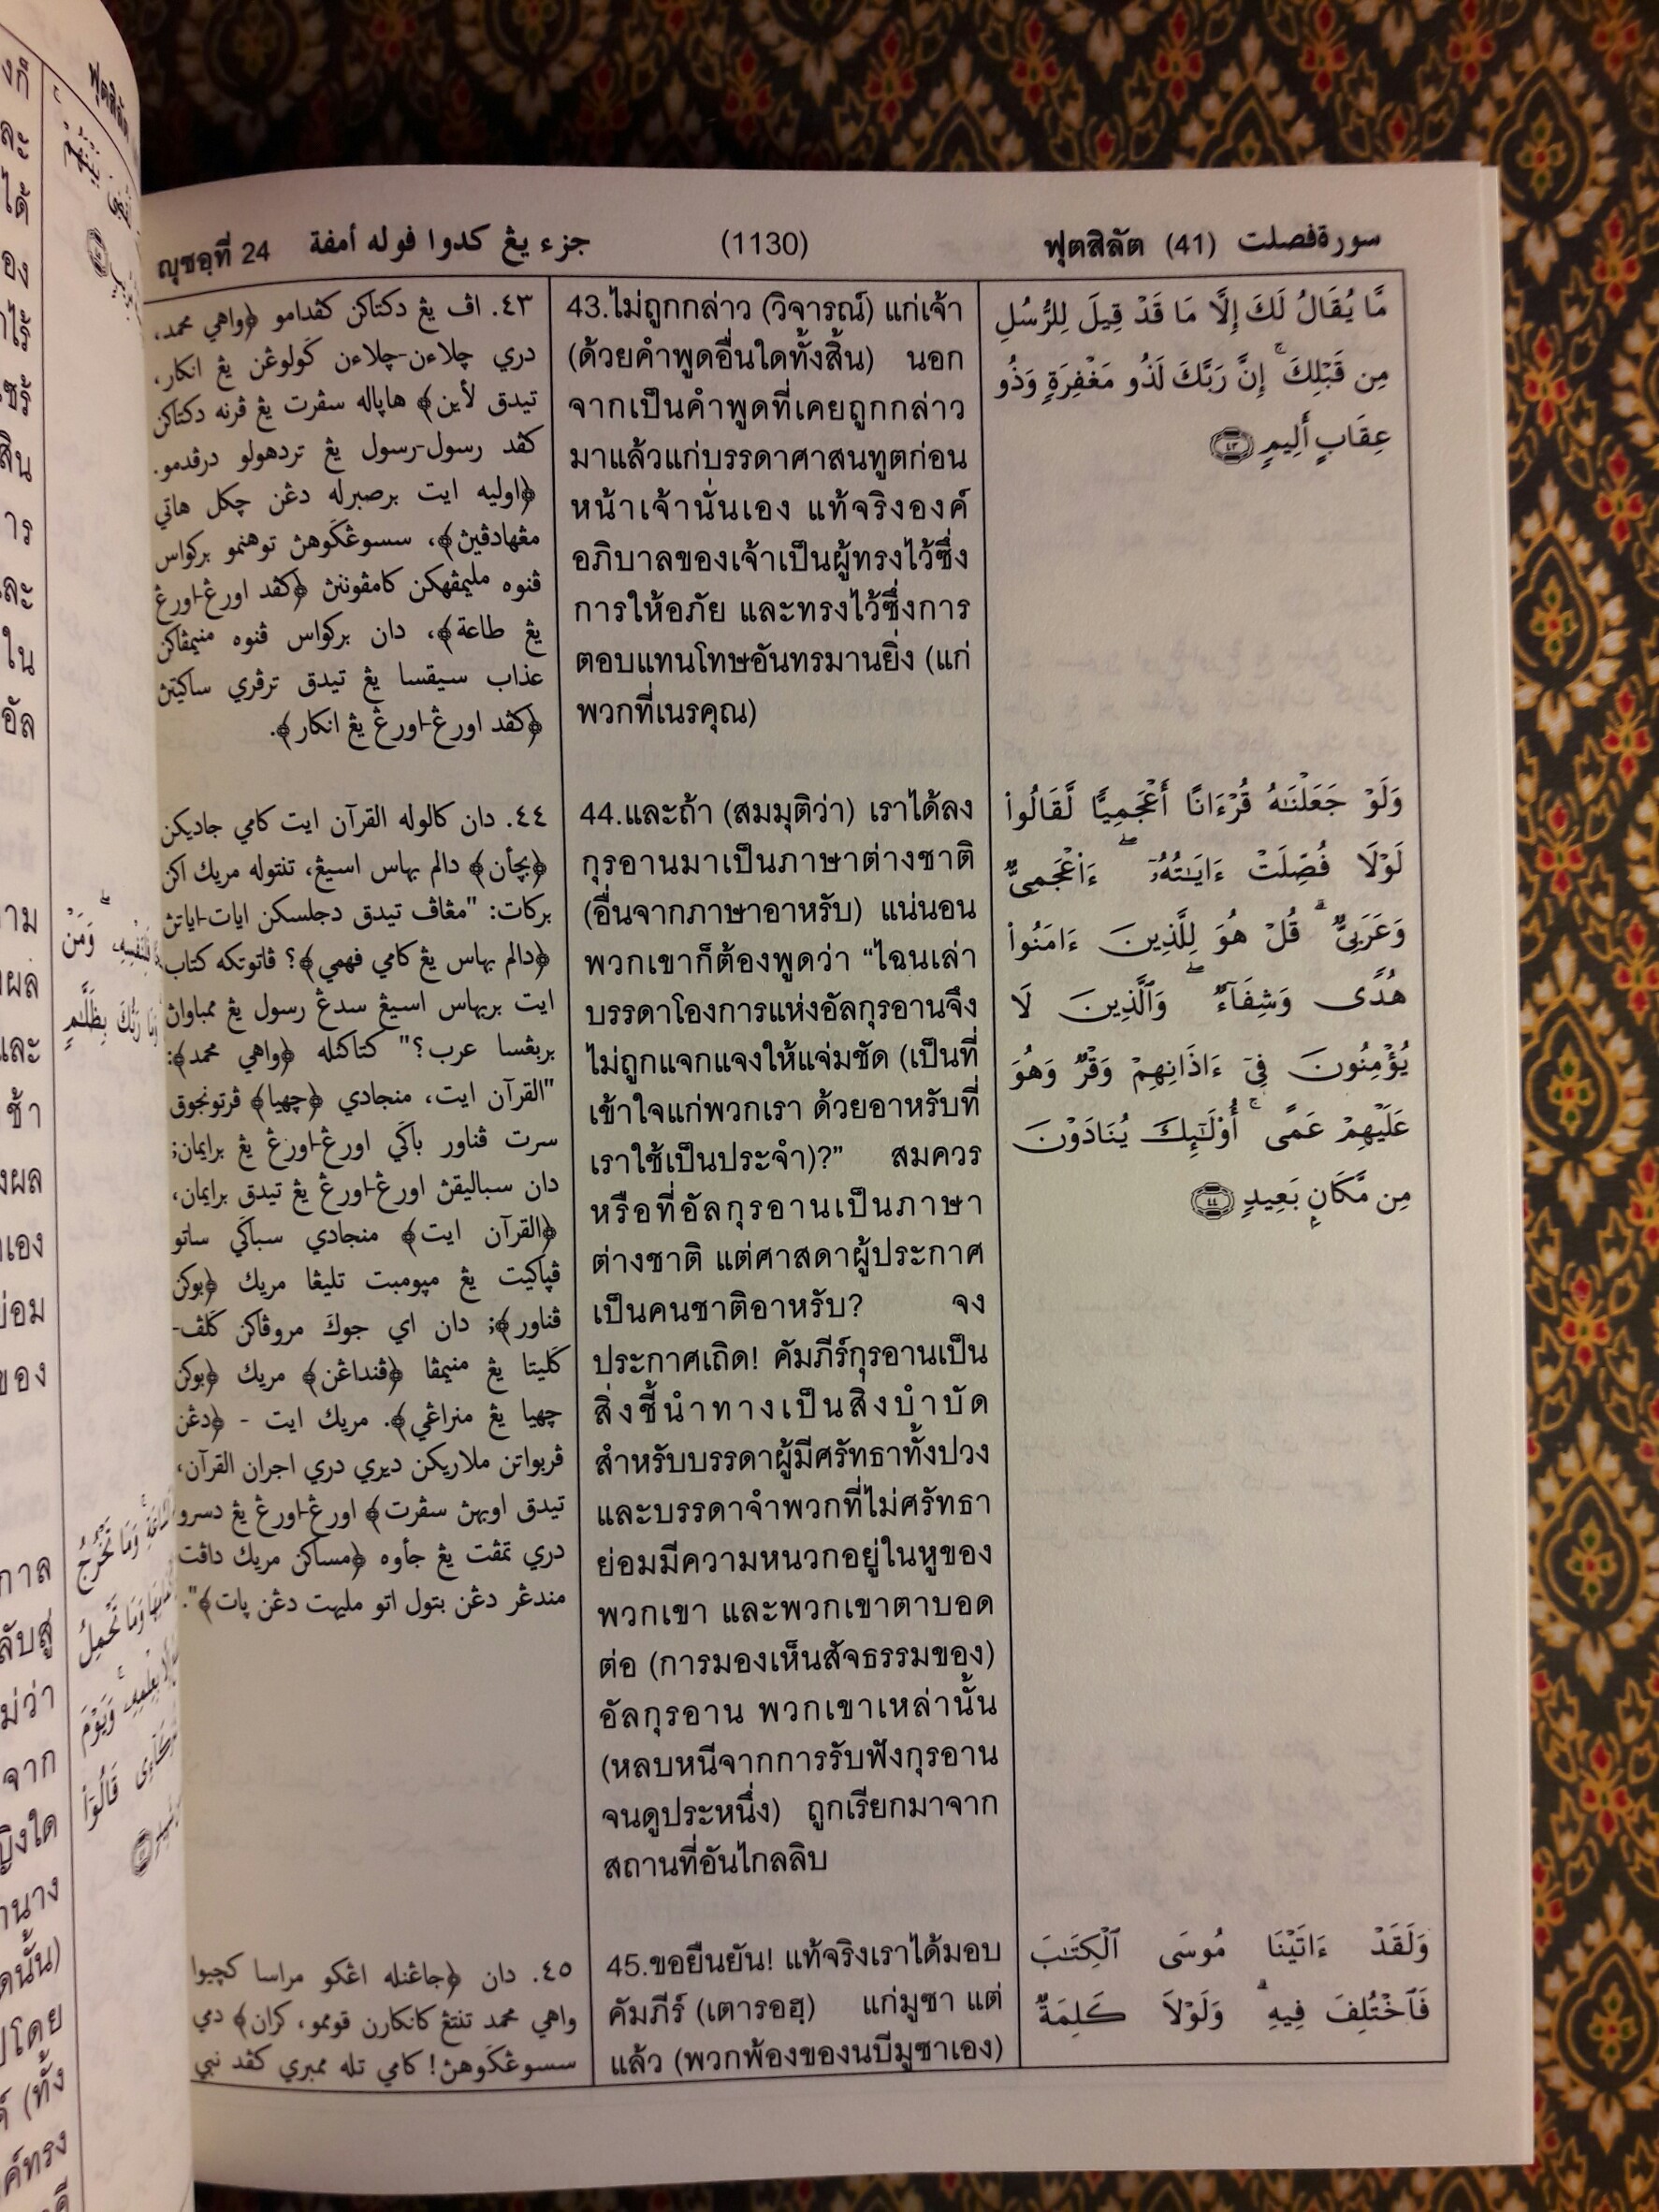 سورة فصلت (41) ฟุตสิลัต
(1130)
جزء يڠ كدوا ڤوله أمڤة ญุซอฺที่ 24
مَّا يُقَالُ لَكَ إِلَّا مَا قَدْ قِيلَ لِلرُّسُلِ
مِن قَبْلِكَ ۚ إِنَّ رَبَّكَ لَذُو مَغْفِرَةٍ وَذُو
عِقَابٍ أَلِيمٍ ٤٣
وَلَوْ جَعَلْنَٰهُ قُرْءَانًا أَعْجَمِيًّا لَّقَالُوا۟
لَوْلَا فُصِّلَتْ ءَايَٰتُهُۥٓ ۖ ءَا۬عْجَمِىٌّ
وَعَرَبِىٌّ ۗ قُلْ هُوَ لِلَّذِينَ ءَامَنُوا۟
هُدًى وَشِفَآءٌ ۖ وَٱلَّذِينَ لَا
يُؤْمِنُونَ فِىٓ ءَاذَانِهِمْ وَقْرٌ وَهُوَ
عَلَيْهِمْ عَمًى ۚ أُو۟لَٰٓئِكَ يُنَادَوْنَ
مِن مَّكَانٍۭ بَعِيدٍ ٤٤
وَلَقَدْ ءَاتَيْنَا مُوسَى ٱلْكِتَٰبَ
فَٱخْتُلِفَ فِيهِ ۗ وَلَوْلَا كَلِمَةٌ
43.ไม่ถูกกล่าว (วิจารณ์) แก่เจ้า
(ด้วยคำพูดอื่นใดทั้งสิ้น) นอก
จากเป็นคำพูดที่เคยถูกกล่าว
มาแล้วแก่บรรดาศาสนทูตก่อน
หน้าเจ้านั่นเอง แท้จริงองค์
อภิบาลของเจ้าเป็นผู้ทรงไว้ซึ่ง
การให้อภัย และทรงไว้ซึ่งการ
ตอบแทนโทษอันทรมานยิ่ง (แก่
พวกที่เนรคุณ)
44.และถ้า (สมมุติว่า) เราได้ลง
กุรอานมาเป็นภาษาต่างชาติ
(อื่นจากภาษาอาหรับ) แน่นอน
พวกเขาก็ต้องพูดว่า “ไฉนเล่า
บรรดาโองการแห่งอัลกุรอานจึง
ไม่ถูกแจกแจงให้แจ่มชัด (เป็นที่
เข้าใจแก่พวกเรา ด้วยอาหรับที่
เราใช้เป็นประจำ)?” สมควร
หรือที่อัลกุรอานเป็นภาษา
ต่างชาติ แต่ศาสดาผู้ประกาศ
เป็นคนชาติอาหรับ? จง
ประกาศเถิด! คัมภีร์กุรอานเป็น
สิ่งชี้นำทางเป็นสิ่งบำบัด
สำหรับบรรดาผู้มีศรัทธาทั้งปวง
และบรรดาจำพวกที่ไม่ศรัทธา
ย่อมมีความหนวกอยู่ในหูของ
พวกเขา และพวกเขาตาบอด
ต่อ (การมองเห็นสัจธรรมของ)
อัลกุรอาน พวกเขาเหล่านั้น
(หลบหนีจากการรับฟังกุรอาน
จนดูประหนึ่ง) ถูกเรียกมาจาก
สถานที่อันไกลลิบ
45.ขอยืนยัน! แท้จริงเราได้มอบ
คัมภีร์ (เตารอฮฺ) แก่มูซา แต่
แล้ว (พวกพ้องของนบีมูซาเอง)
٤٣. اڤ يڠ دكتاكن كڤدامو ﴿واهي محمد،
دري چلاءن-چلاءن ݢولوڠن يڠ انكار،
تيدق لأين﴾ هاڽاله سڤرت يڠ ڤرنه دكتاكن
كڤد رسول-رسول يڠ تردهولو درڤدمو.
﴿اوليه ايت برصبرله دڠن چكل هاتي
مڠهادڤيڽ﴾، سسوڠݢوهڽ توهنمو بركواس
ڤنوه مليمڤهكن كامڤوننڽ ﴿كڤد اورڠ-اورڠ
يڠ طاعة﴾، دان بركواس ڤنوه منيمڤاكن
عذاب سيقسا يڠ تيدق ترڤري ساكيتڽ
﴿كڤد اورڠ-اورڠ يڠ انكار﴾.
٤٤. دان كالوله القرآن ايت كامي جاديكن
﴿بچأن﴾ دالم بهاس اسيڠ، تنتوله مريك اكن
بركات: "مڠاڤ تيدق دجلسكن ايات-اياتڽ
﴿دالم بهاس يڠ كامي فهمي﴾؟ ڤاتوتكه كتاب
ايت بربهاس اسيڠ سدڠ رسول يڠ ممباواڽ
بربڠسا عرب؟" كتاكنله ﴿واهي محمد﴾:
"القرآن ايت، منجادي ﴿چهيا﴾ ڤرتونجوق
سرت ڤناور باݢي اورڠ-اورڠ يڠ برايمان;
دان سباليقڽ اورڠ-اورڠ يڠ تيدق برايمان،
﴿القرآن ايت﴾ منجادي سباݢي ساتو
ڤڽاكيت يڠ مڽومبت تليڠا مريك ﴿بوكن
ڤناور﴾; دان اي جوݢ مروڤاكن ݢلڤ-
ݢليتا يڠ منيمڤا ﴿ڤنداڠن﴾ مريك ﴿بوكن
چهيا يڠ منراڠي﴾. مريك ايت - ﴿دڠن
ڤربواتن ملاريكن ديري دري اجران القرآن،
تيدق اوبهڽ سڤرت﴾ اورڠ-اورڠ يڠ دسرو
دري تمڤت يڠ جأوه ﴿مساكن مريك داڤت
مندڠر دڠن بتول اتو مليهت دڠن ڽات﴾".
٤٥. دان ﴿جاڠنله اڠكو مراسا كچيوا
واهي محمد تنتڠ كانكارن قوممو، كران﴾ دمي
سسوڠݢوهڽ! كامي تله ممبري كڤد نبي